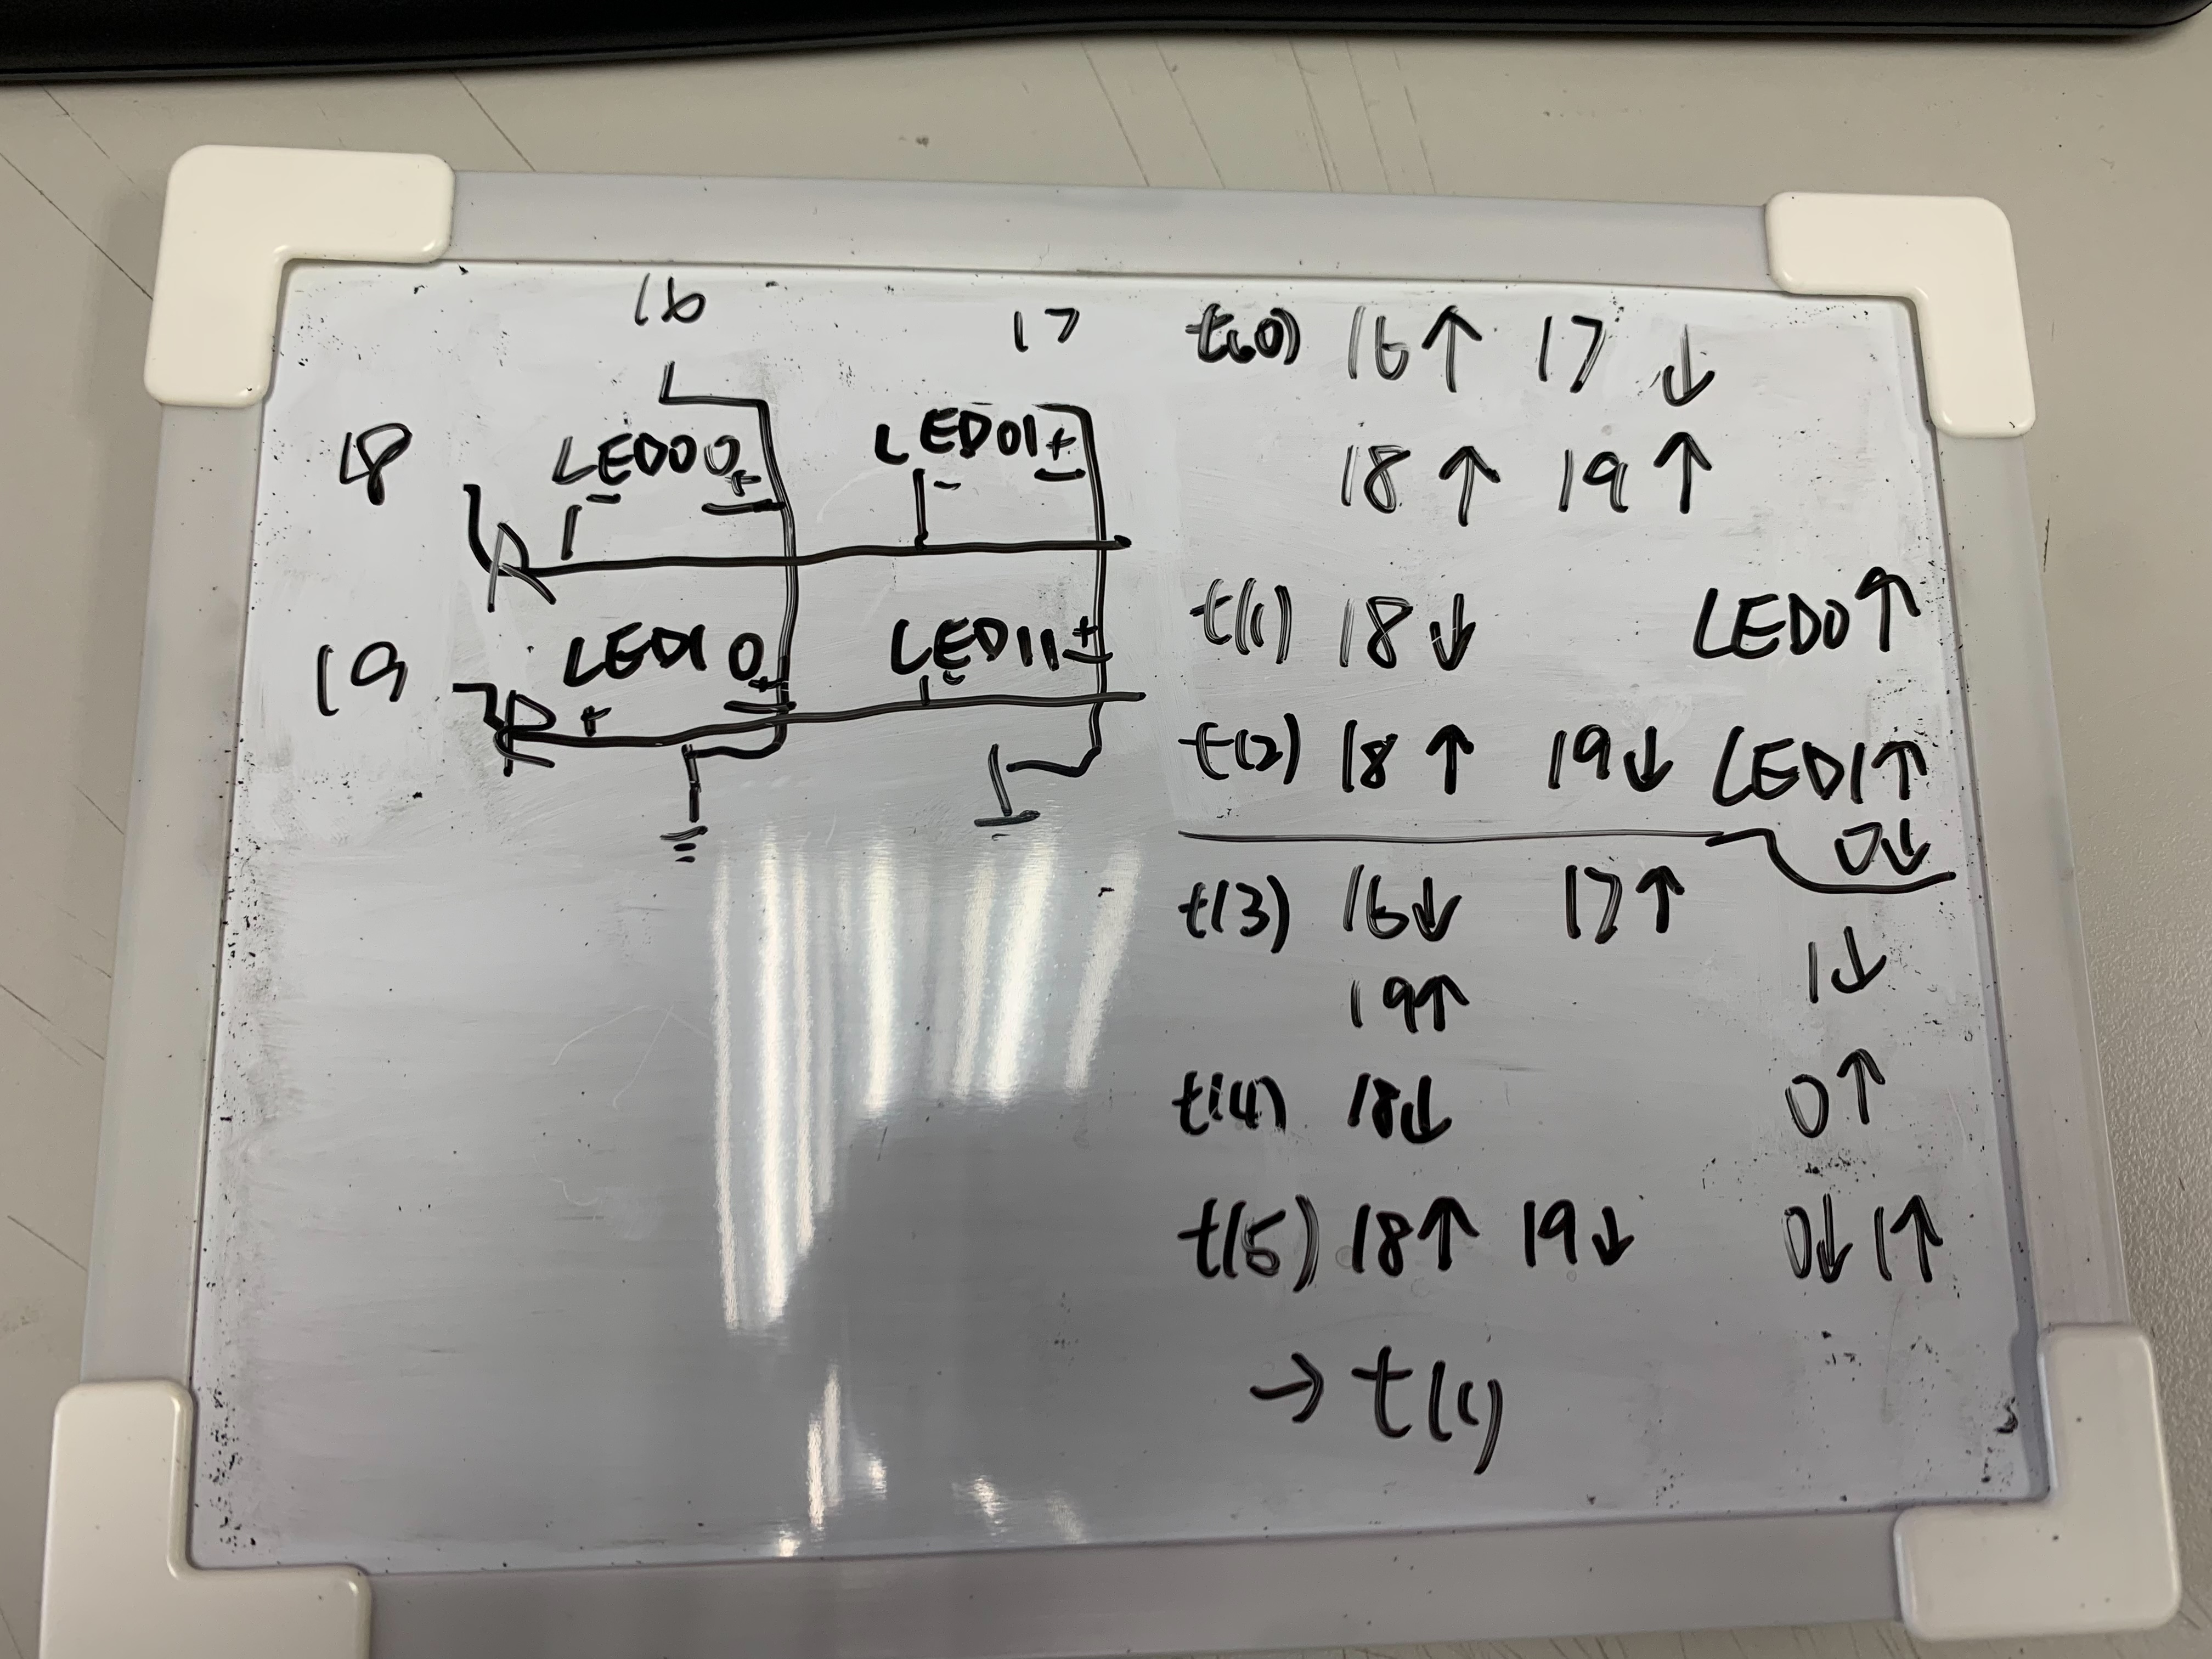 16 17
18 LED00 + LED01 +
- -
R
19 LED10 + LED11 +
R + -
t(0) 16↑ 17↓
18↑ 19↑
t(1) 18↓ LED0↑
t(2) 18↑ 19↓ LED1↑
0↓
t(3) 16↓ 17↑
1↓
19↑
t(4) 18↓ 0↑
t(5) 18↑ 19↓ 0↓ 1↑
→ t(1)